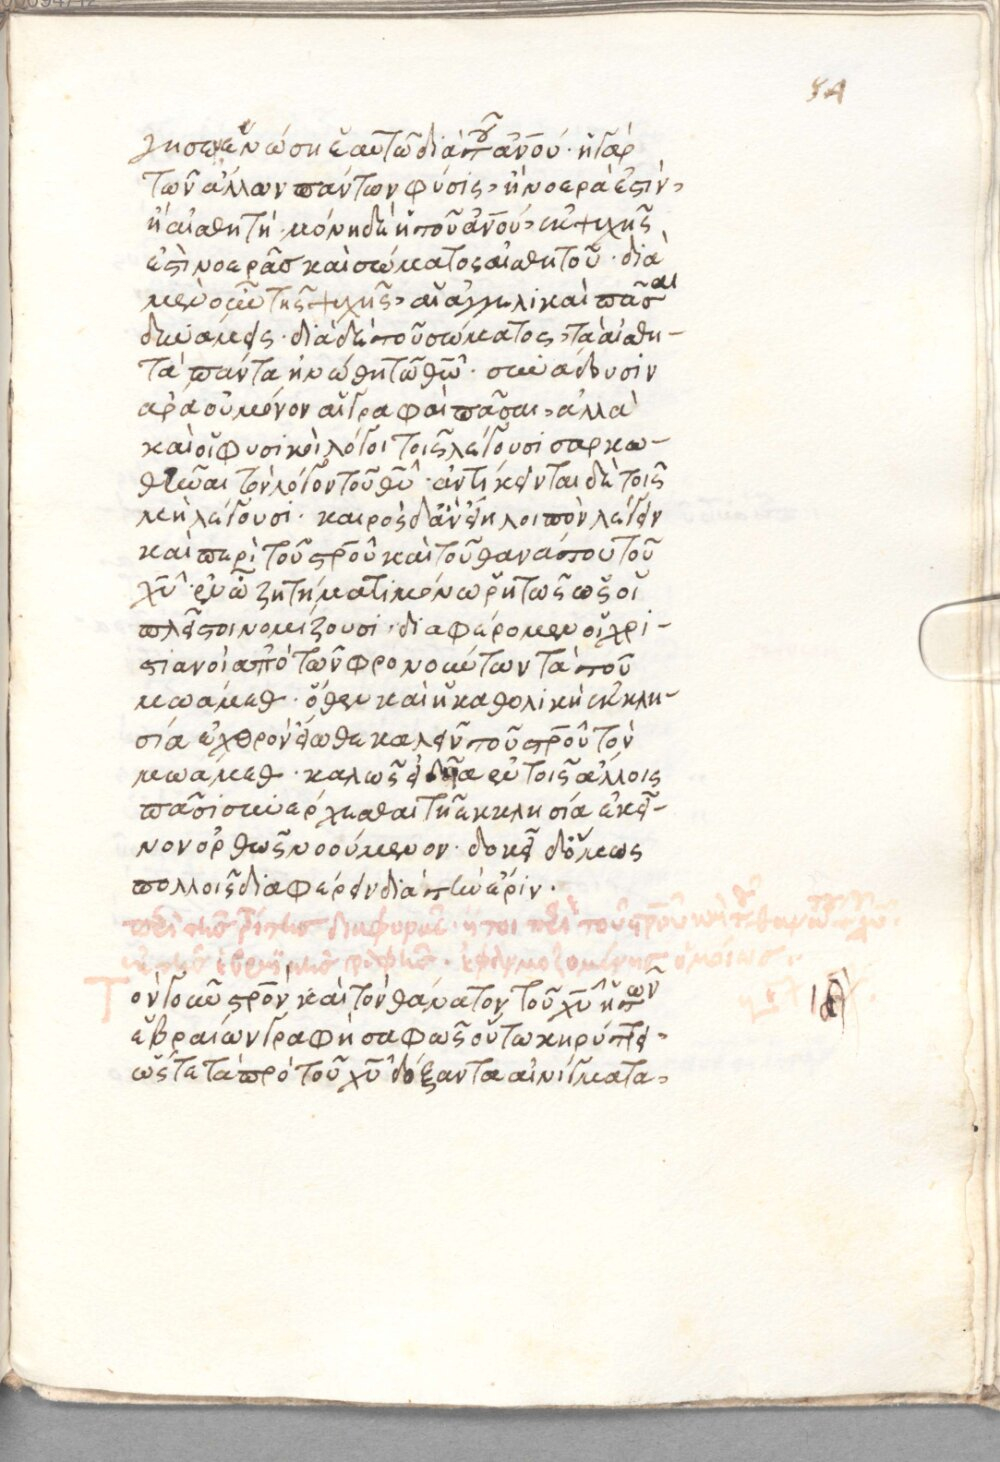 54
τῶν ἄλλων πάντων φύσις, ἢ νοερά ἐστιν,
ἢ αἰσθητή· μόνη δὲ ἡ τοῦ ἀνοῦ, ἐκ ψυχῆς
ἐστὶ νοερᾶς καὶ σώματος αἰσθητοῦ· διὰ
μὲν οὖν τῆς ψυχῆς, αἱ ἀγγελικαὶ πᾶσαι
δυνάμεις· διὰ δὲ τοῦ σώματος, τὰ αἰσθη-
τὰ πάντα ἡνώθη τῶ θῶ· συνάδουσιν
ἄρα οὐ μόνον αἱ γραφαὶ πᾶσαι, ἀλλὰ
καὶ οἱ φυσικοὶ λόγοι τοῖς λέγουσι σαρκω-
θῆναι τὸν λόγον τοῦ θῦ· ἀντίκεινται δὲ τοῖς
μὴ λέγουσι· καιρὸς δ' ἂν εἴη λοιπὸν λέγειν
καὶ περὶ τοῦ σροῦ καὶ τοῦ θανάτου τοῦ
χῦ· ἐν ὧ ζητήματι μόνω ῥητῶς ὡς οἱ
πλεῖστοι νομίζουσι, διαφέρομεν οἱ χρι-
στιανοὶ ἀπὸ τῶν φρονούντων τὰ τοῦ
μωάμεθ· ὅθεν καὶ ἡ καθολικὴ ἐκκλη-
σία ἐχθρὸν εἴωθε καλεῖν τοῦ σροῦ τὸν
μωάμεθ· καλῶς εἰδυῖα ἐν τοῖς ἄλλοις
πᾶσι συνέρχεσθαι τῆ ἐκκλησία ἐκεῖ-
νον ὀρθῶς νοούμενον· δοκεῖ δ' ὅμως
πολλοῖς διαφέρειν διὰ
Τὸν γοῦν σρὸν καὶ τὸν θάνατον τοῦ χῦ ἡ τῶν
ἑβραίων γραφὴ σαφῶς οὕτω κηρύττει,
ὥστε τὰ πρὸ τοῦ χῦ δόξαντα αἰνίγματα,